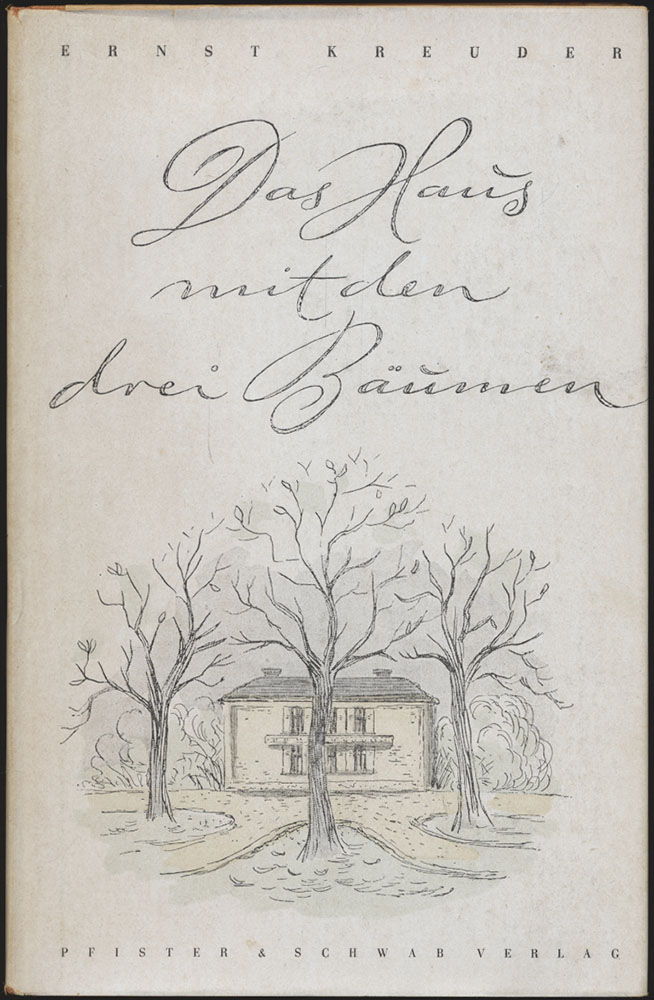 ERNST KREUDER
Das Haus
mit den
drei Bäumen
PFISTER & SCHWAB VERLAG